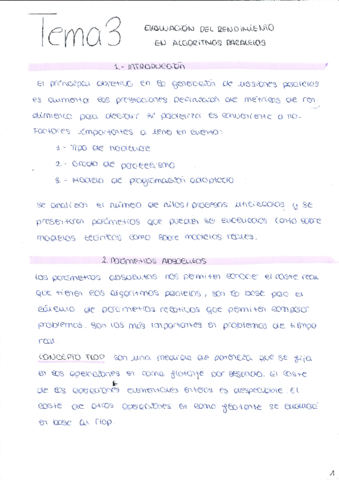 Tema 3 EVALUACIÓN DEL RENDIMIENTO
EN ALGORITMOS PARALELOS
1.- INTRODUCCIÓN
El principal objetivo en la generación de versiones paralelas
es aumentar las prestaciones. Definición de métricas de ren
dimiento para decidir si paralelizar es conveniente o no.
Factores importantes a tener en cuenta:
1 - Tipo de hardware
2 - Grado de paralelismo
3 - Modelo de programación adoptado
Se analizan el número de hilos/procesos utilizados y se
presentarán parámetros que puedan ser evaluados tanto sobre
modelos teóricos como sobre modelos reales.
2. PARÁMETROS ABSOLUTOS
Los parámetros absolutos nos permiten conocer el coste real
que tienen los algoritmos paralelos, son la base para el
cálculo de parámetros relativos que permiten comparar
problemas. Son los más importantes en problemas de tiempo
real.
CONCEPTO FLOP son una medida de potencia que se fija
en las operaciones en coma flotante por segundo. El coste
de las operaciones elementales enteras es despreciable el
coste de otras operaciones en coma flotante se evaluará
en base al Flop.
1